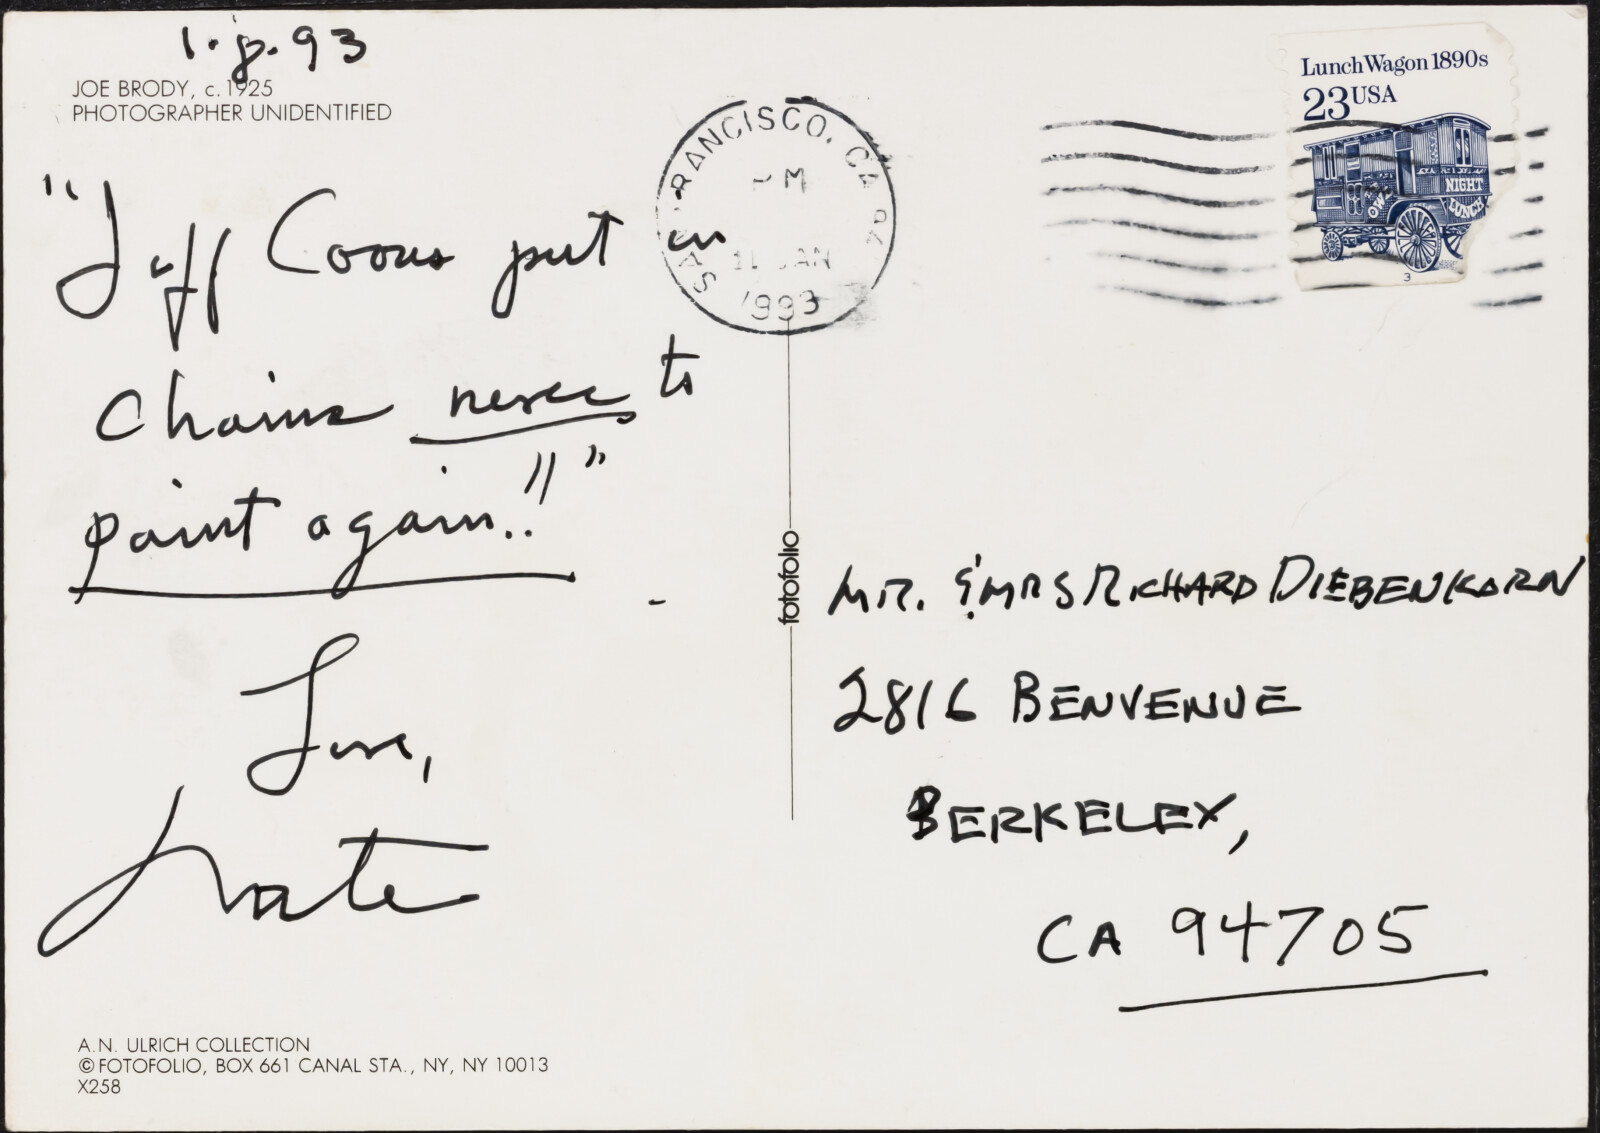 1.8.93
JOE BRODY, c. 1925
PHOTOGRAPHER UNIDENTIFIED
"Jeff Coons put in
chains never to
paint again!!"
Love,
Nate
A.N. ULRICH COLLECTION
© FOTOFOLIO, BOX 661 CANAL STA., NY, NY 10013
X258
fotofolio
SAN FRANCISCO, CA
PM
JAN
1993
Lunch Wagon 1890s
23 USA
OWL
NIGHT
LUNCH
3
MR. & MRS RICHARD DIEBENKORN
2816 BENVENUE
BERKELEY,
CA 94705